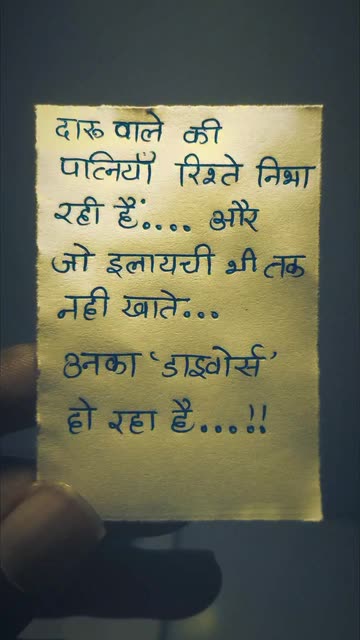 दारू वाले की
पत्नियाँ रिश्ते निभा
रही हैं.... और
जो इलायची भी तक
नही खाते...
उनका 'डाइवोर्स'
हो रहा है...!!